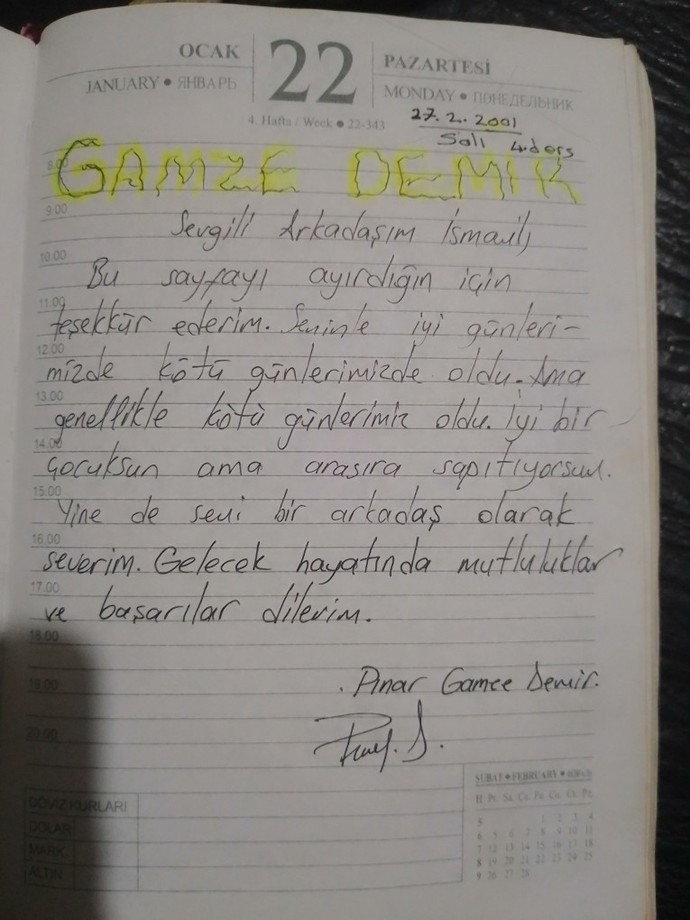 OCAK 22 PAZARTESİ
JANUARY • ЯНВАРЬ MONDAY • ПОНЕДЕЛЬНИК
4. Hafta / Week • 22-343
27.2.2001
Salı 4.ders
8.00
GAMZE DEMİR
9.00
Sevgili Arkadaşım İsmail,
10.00
Bu sayfayı ayırdığın için
11.00
teşekkür ederim. Seninle iyi günleri-
12.00
mizde kötü günlerimizde oldu. Ama
13.00
genellikle kötü günlerimiz oldu. İyi bir
14.00
çocuksun ama arasıra sapıtıyorsun.
15.00
Yine de seni bir arkadaş olarak
16.00
severim. Gelecek hayatında mutluluklar
17.00
ve başarılar dilerim.
18.00
19.00
Pınar Gamze Demir.
20.00
DÖVİZ KURLARI
DOLAR
MARK
ALTIN
ŞUBAT • FEBRUARY •
H Pt. Sa. Ça. Pe. Cu. Ct. Pz.
5 1 2 3 4
6 5 6 7 8 9 10 11
7 12 13 14 15 16 17 18
8 19 20 21 22 23 24 25
9 26 27 28